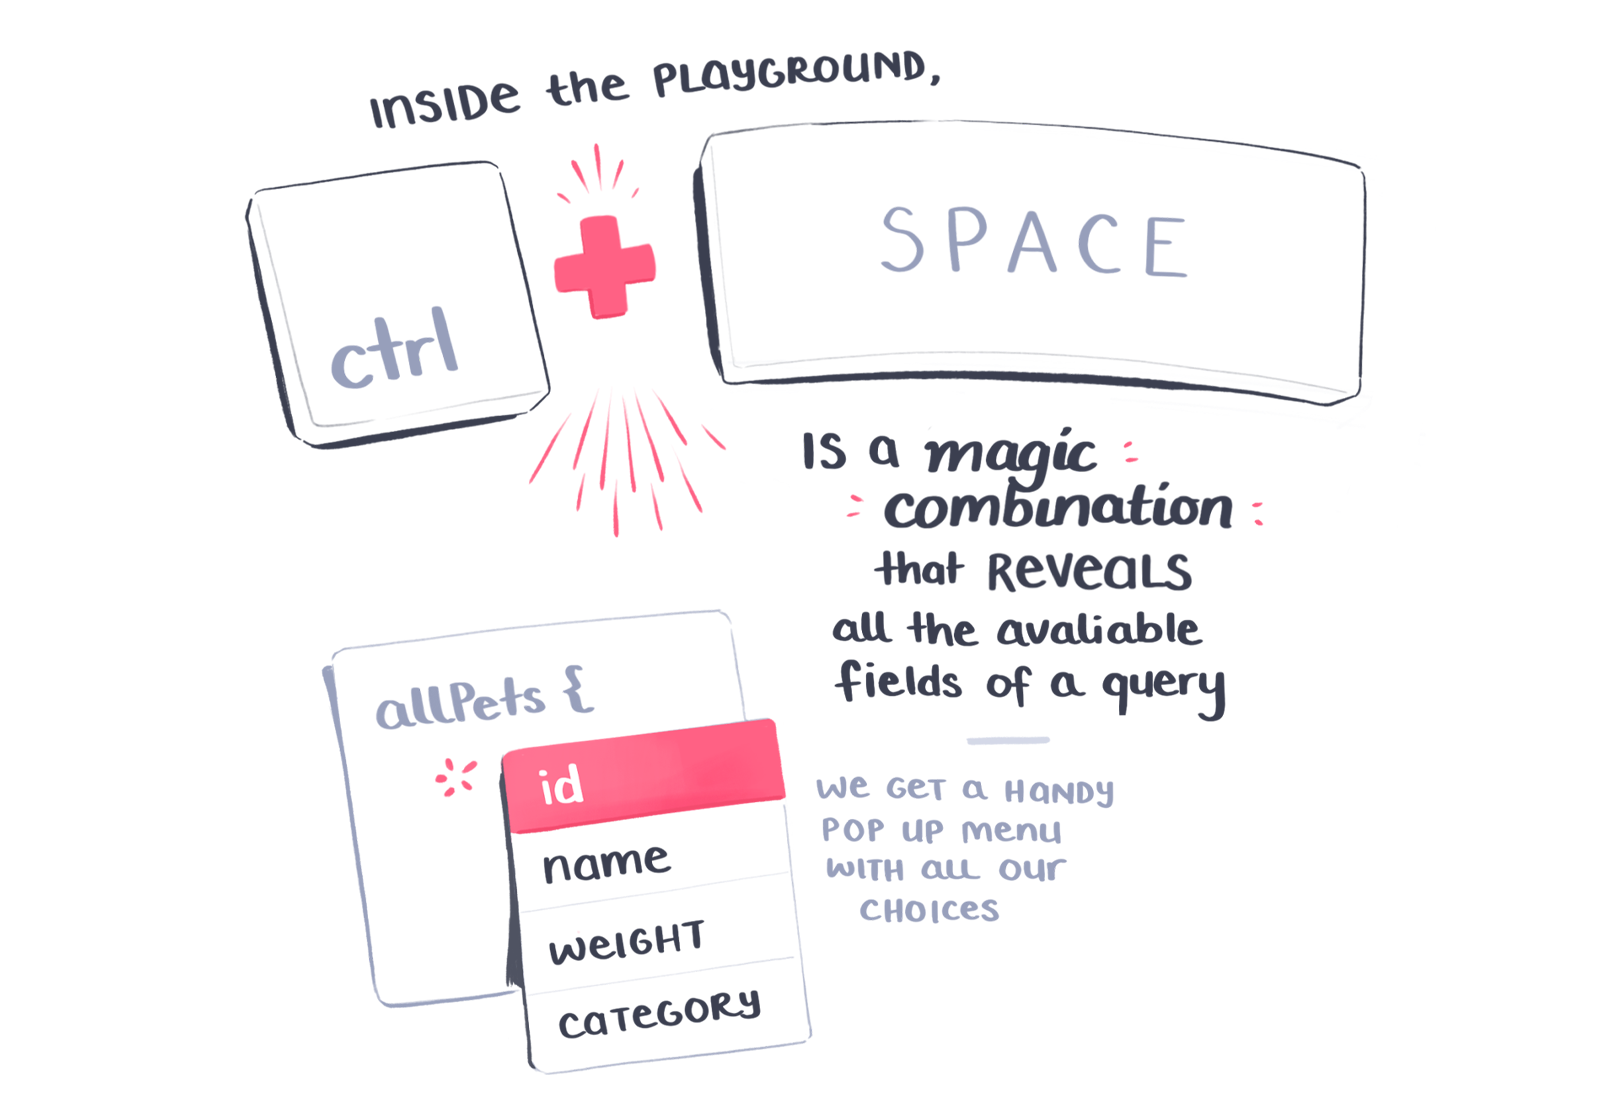 INSIDE the PLAYGROUND,
ctrl
SPACE
IS a magic
combination
that REVEALS
all the avaliable
fields of a query
allPets {
id
name
WEIGHT
CATEGORY
WE GET a HANDY
POP UP MENU
WITH all OUR
CHOICES